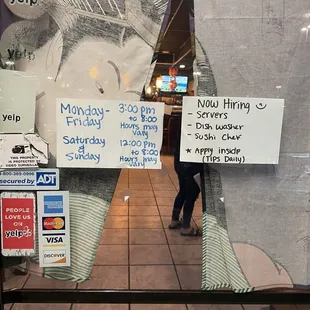 yelp
yelp
yelp
THIS PROPERTY
IS PROTECTED BY
VIDEO SURVEILLANCE
1-800-209-0006
secured by ADT
PEOPLE
LOVE US
ON
yelp
AMERICAN EXPRESS
MasterCard
VISA
DISCOVER
Monday - Friday
3:00pm
to 8:00
Hours may
vary
Saturday &
Sunday
12:00
to 8:00
Hours may
vary
Now Hiring
- Servers
- Dish washer
- Sushi Chef
* Apply inside
(Tips Daily)